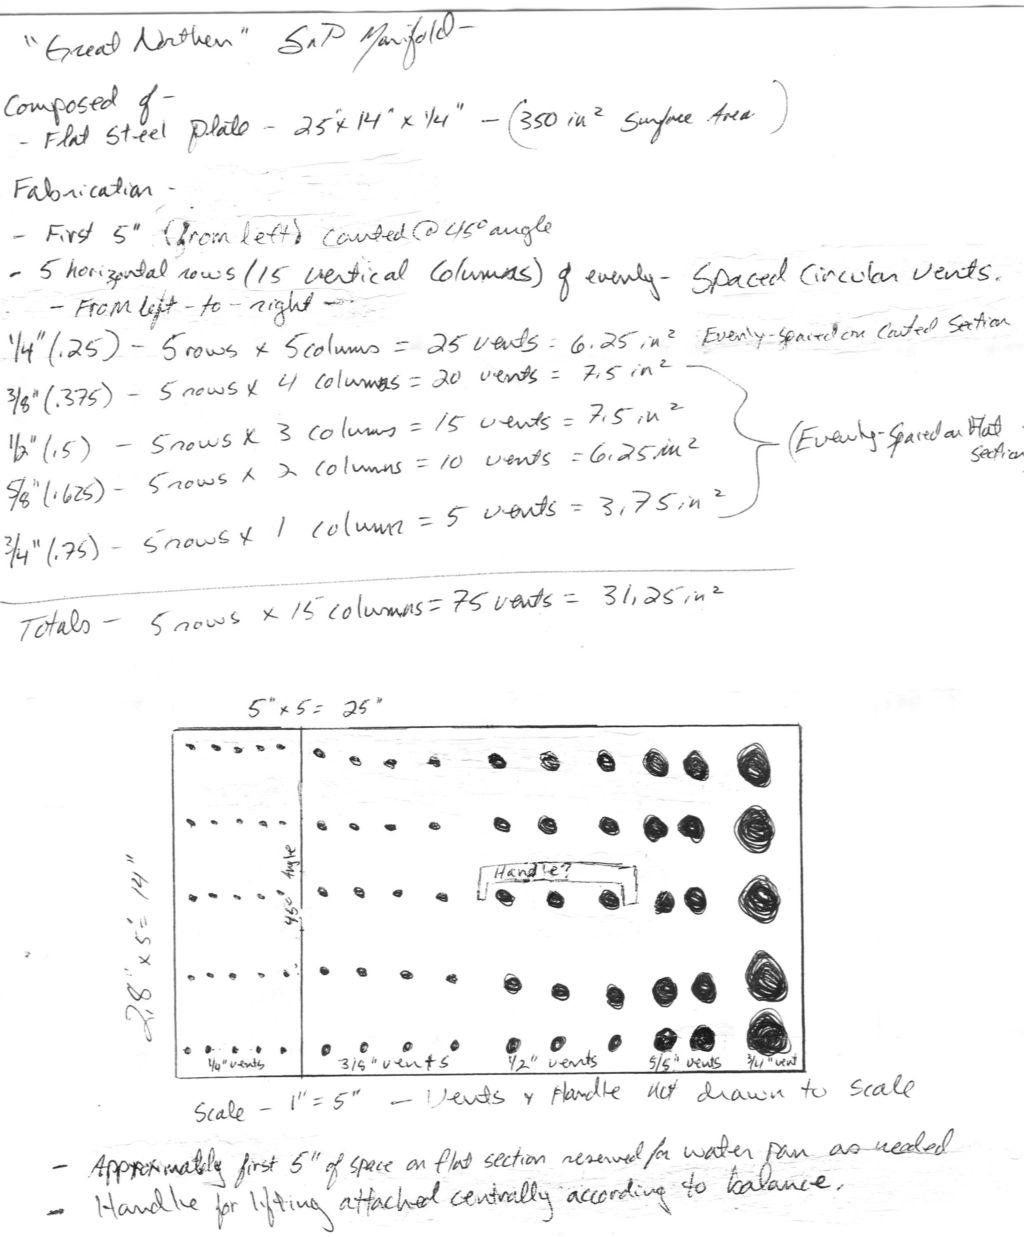 "Great Northern" SnP Manifold -
Composed of -
- Flat Steel Plate - 25" x 14" x 1/4" - (350 in² Surface Area)
Fabrication -
- First 5" (from left) canted @ 45° angle
- 5 horizontal rows (15 vertical columns) of evenly-spaced circular vents.
- From left-to-right -
1/4" (.25) - 5 rows x 5 colums = 25 vents = 6.25 in² Evenly-spaced on Canted Section
3/8" (.375) - 5 rows x 4 columns = 20 vents = 7.5 in²
1/2" (.5) - 5 rows x 3 columns = 15 vents = 7.5 in²
5/8" (.625) - 5 rows x 2 columns = 10 vents = 6.25 in²
3/4" (.75) - 5 rows x 1 column = 5 vents = 3.75 in²
(Evenly-Spaced on Flat Section
Totals - 5 rows x 15 columns = 75 vents = 31.25 in²
5" x 5 = 25"
2.8" x 5 = 14"
45° Angle
Handle?
1/4" vents 3/8" vents 1/2" vents 5/8" vents 3/4" vent
Scale - 1" = 5" - Vents & Handle not drawn to scale
- Approximately first 5" of space on flat section reserved for water pan as needed
- Handle for lifting attached centrally according to balance.